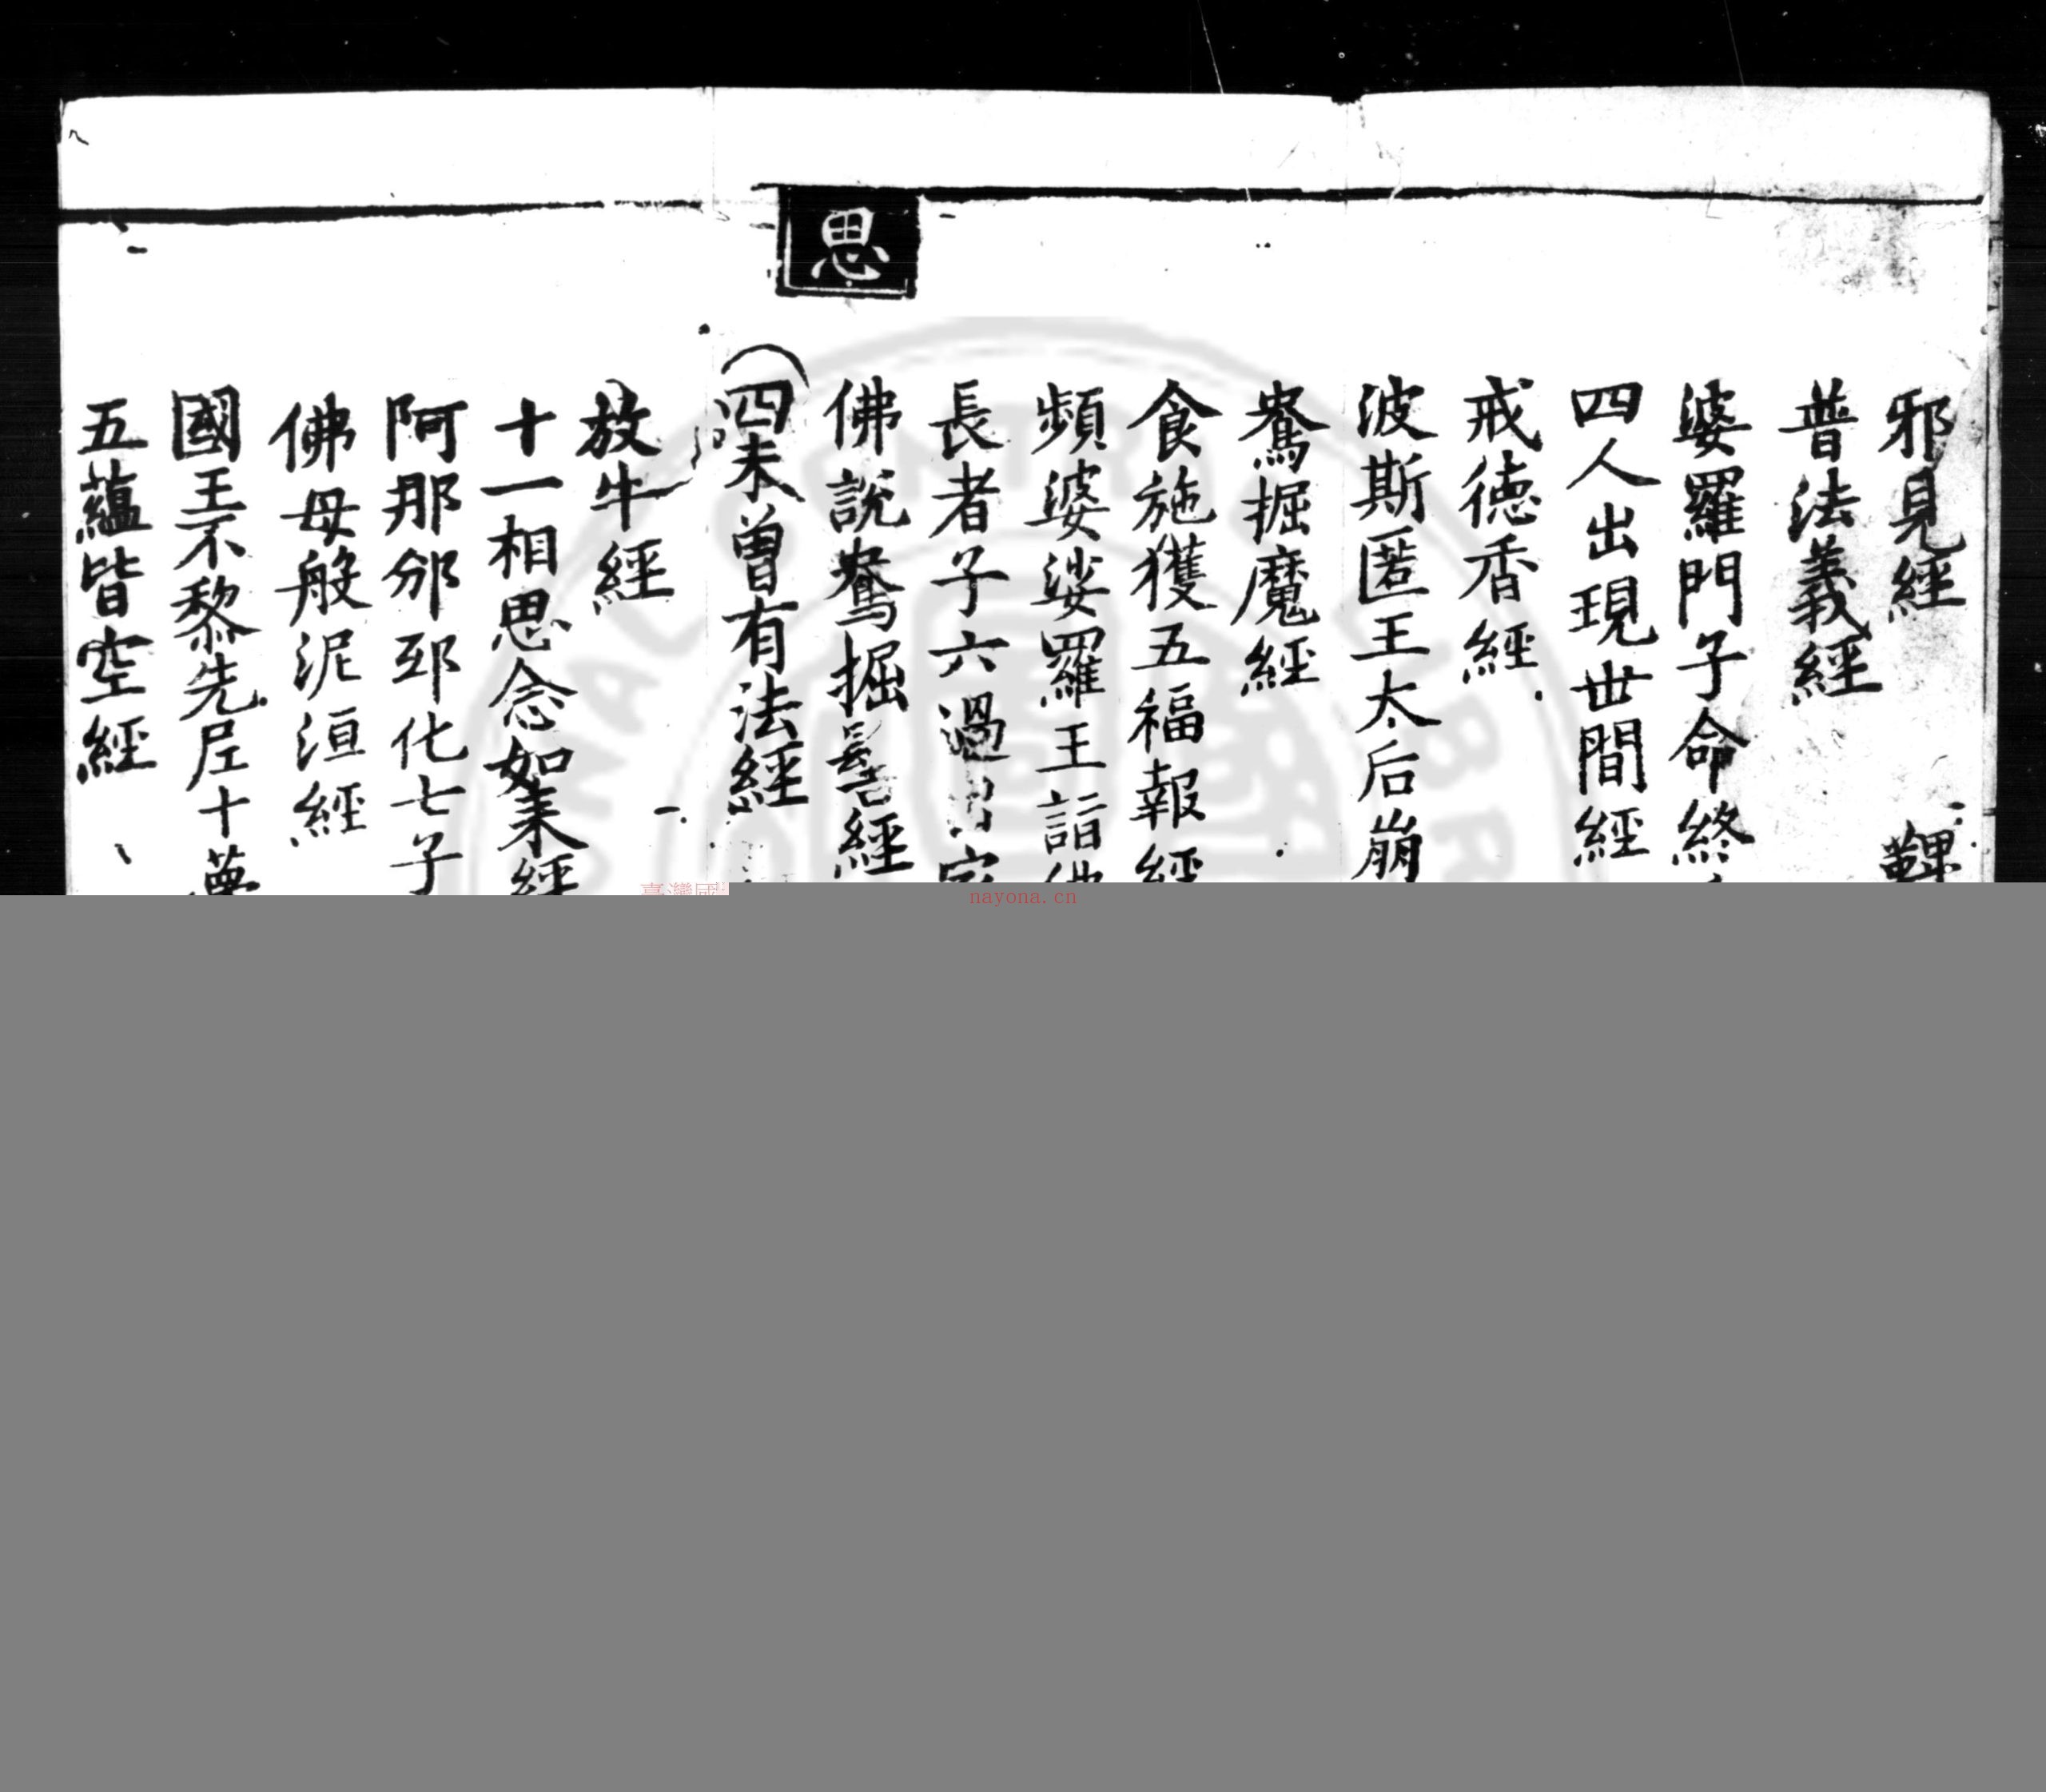 邪見經
鞞
普法義經
婆羅門子命終
四人出現世間經
戒德香經
波斯匿王太后崩
鴦掘魔經
食施獲五福報經
頻婆娑羅王詣佛
長者子六過出家
佛說鴦掘髻經
思
四未曾有法經
放牛經
十一相思念如来經
阿那邠邸化七子
佛母般泥洹經
國王不黎先尼十夢
五蘊皆空經
臺灣國
nayona.cn